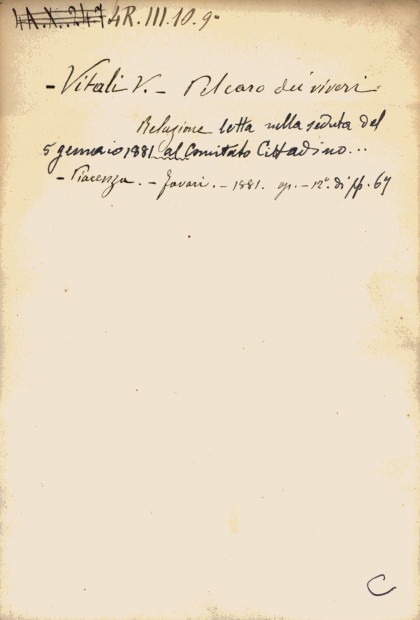 4A.X.247 4R.III.10.9°
- Vitali V. - Pel caro dei viveri
Relazione letta nella seduta del
5 gennaio 1881 al Comitato Cittadino...
- Piacenza. - Favari. - 1881. op. - 12°. di pp. 67
C